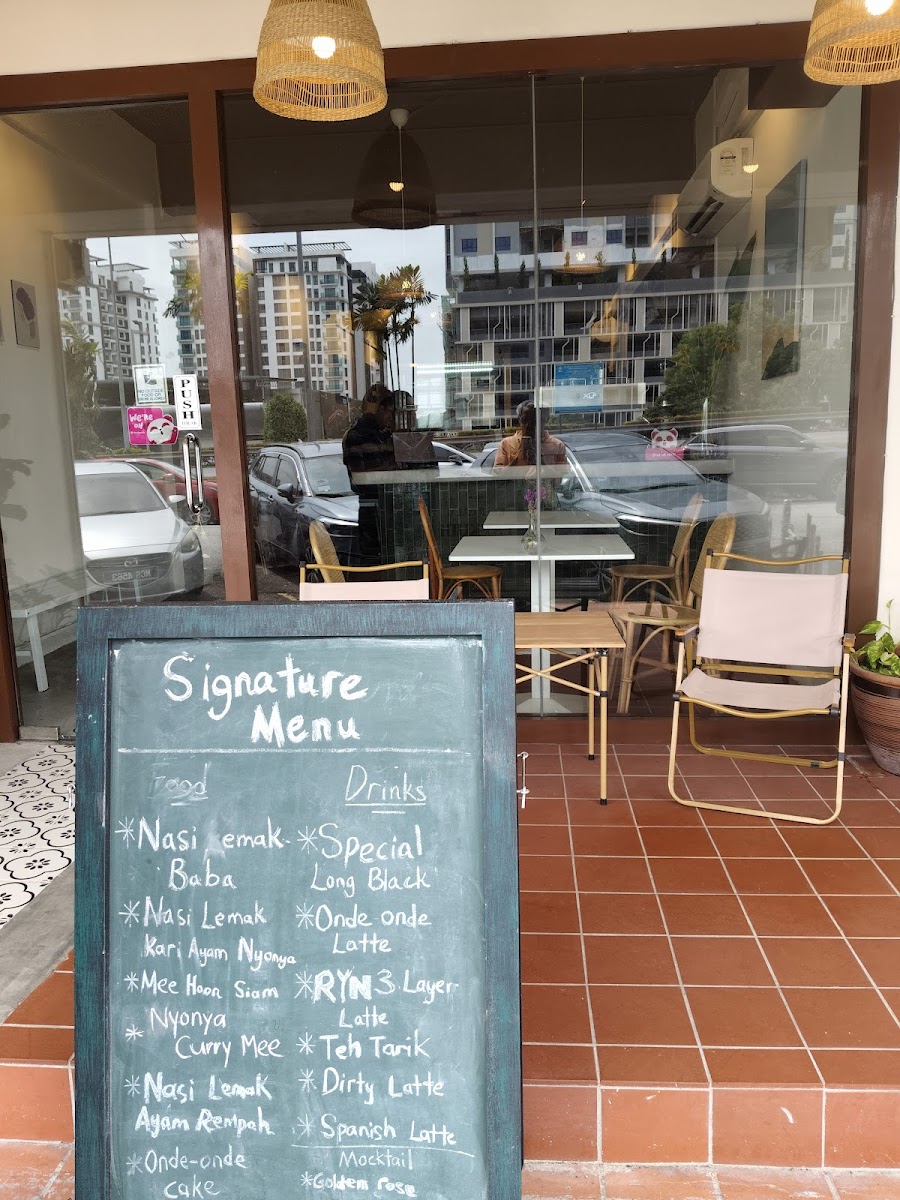 PUSH
WE'RE
on
Signature
Menu
Food
Drinks
*Nasi Lemak
Baba
*Nasi Lemak
Kari Ayam Nyonya
*Mee Hoon Siam
* Nyonya
Curry Mee
*Nasi Lemak
Ayam Rempah
*Onde-onde
cake
*Special
Long Black
*Onde onde
Latte
*RYN 3 Layer
Latte
*Teh Tarik
*Dirty Latte
*Spanish Latte
Mocktail
*Goldem rose